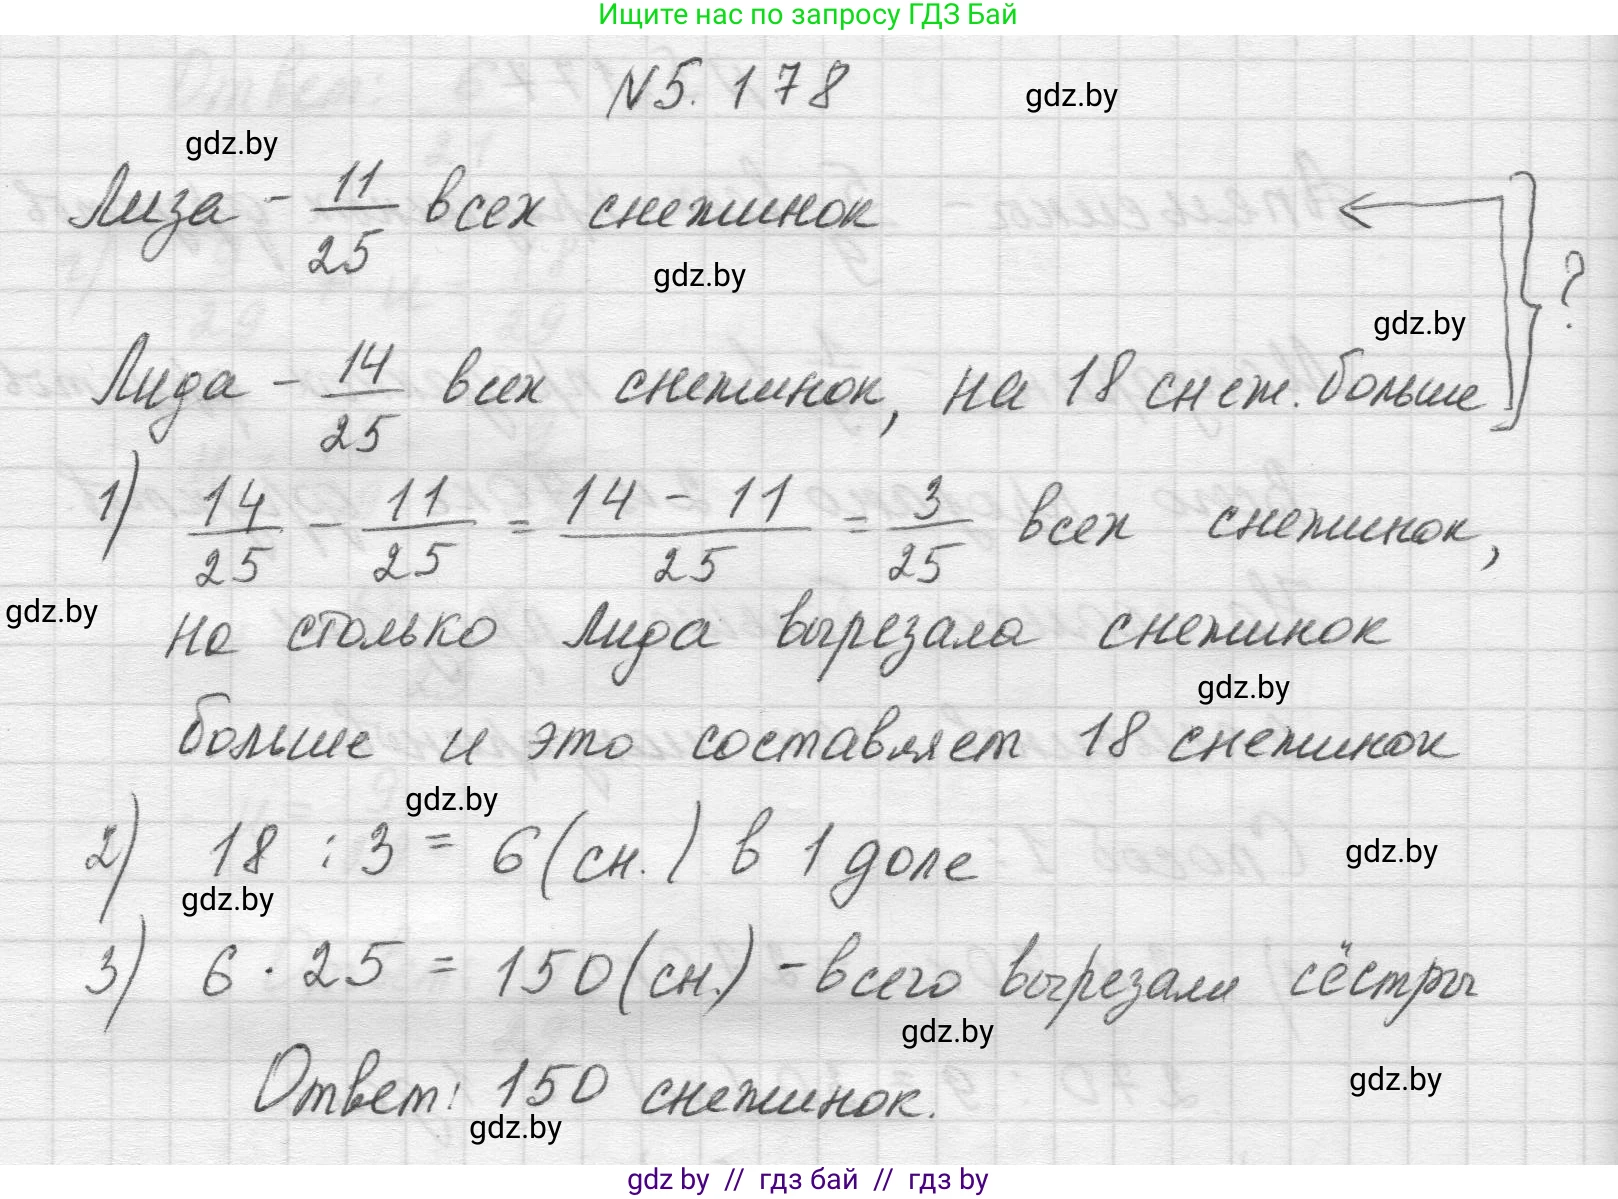 Ищите нас по запросу ГДЗ Бай
N5.178
gdz.by
gdz.by
Лиза - 11/25 всех снежинок
gdz.by
?
gdz.by
Лида - 14/25 всех снежинок, на 18 снеж. больше
1) 14/25 - 11/25 = (14 - 11)/25 = 3/25 всех снежинок,
gdz.by
на столько Лида вырезала снежинок
gdz.by
больше и это составляет 18 снежинок
gdz.by
2) 18 : 3 = 6 (сн.) в 1 доле
gdz.by
gdz.by
3) 6 · 25 = 150 (сн.) - всего вырезали сёстры
gdz.by
Ответ: 150 снежинок.
gdz.by
gdz.by
gdz by // гдз бай // гдз by